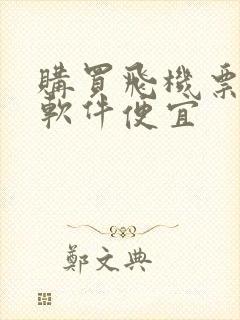 購買飛機票
軟件便宜
鄭文典